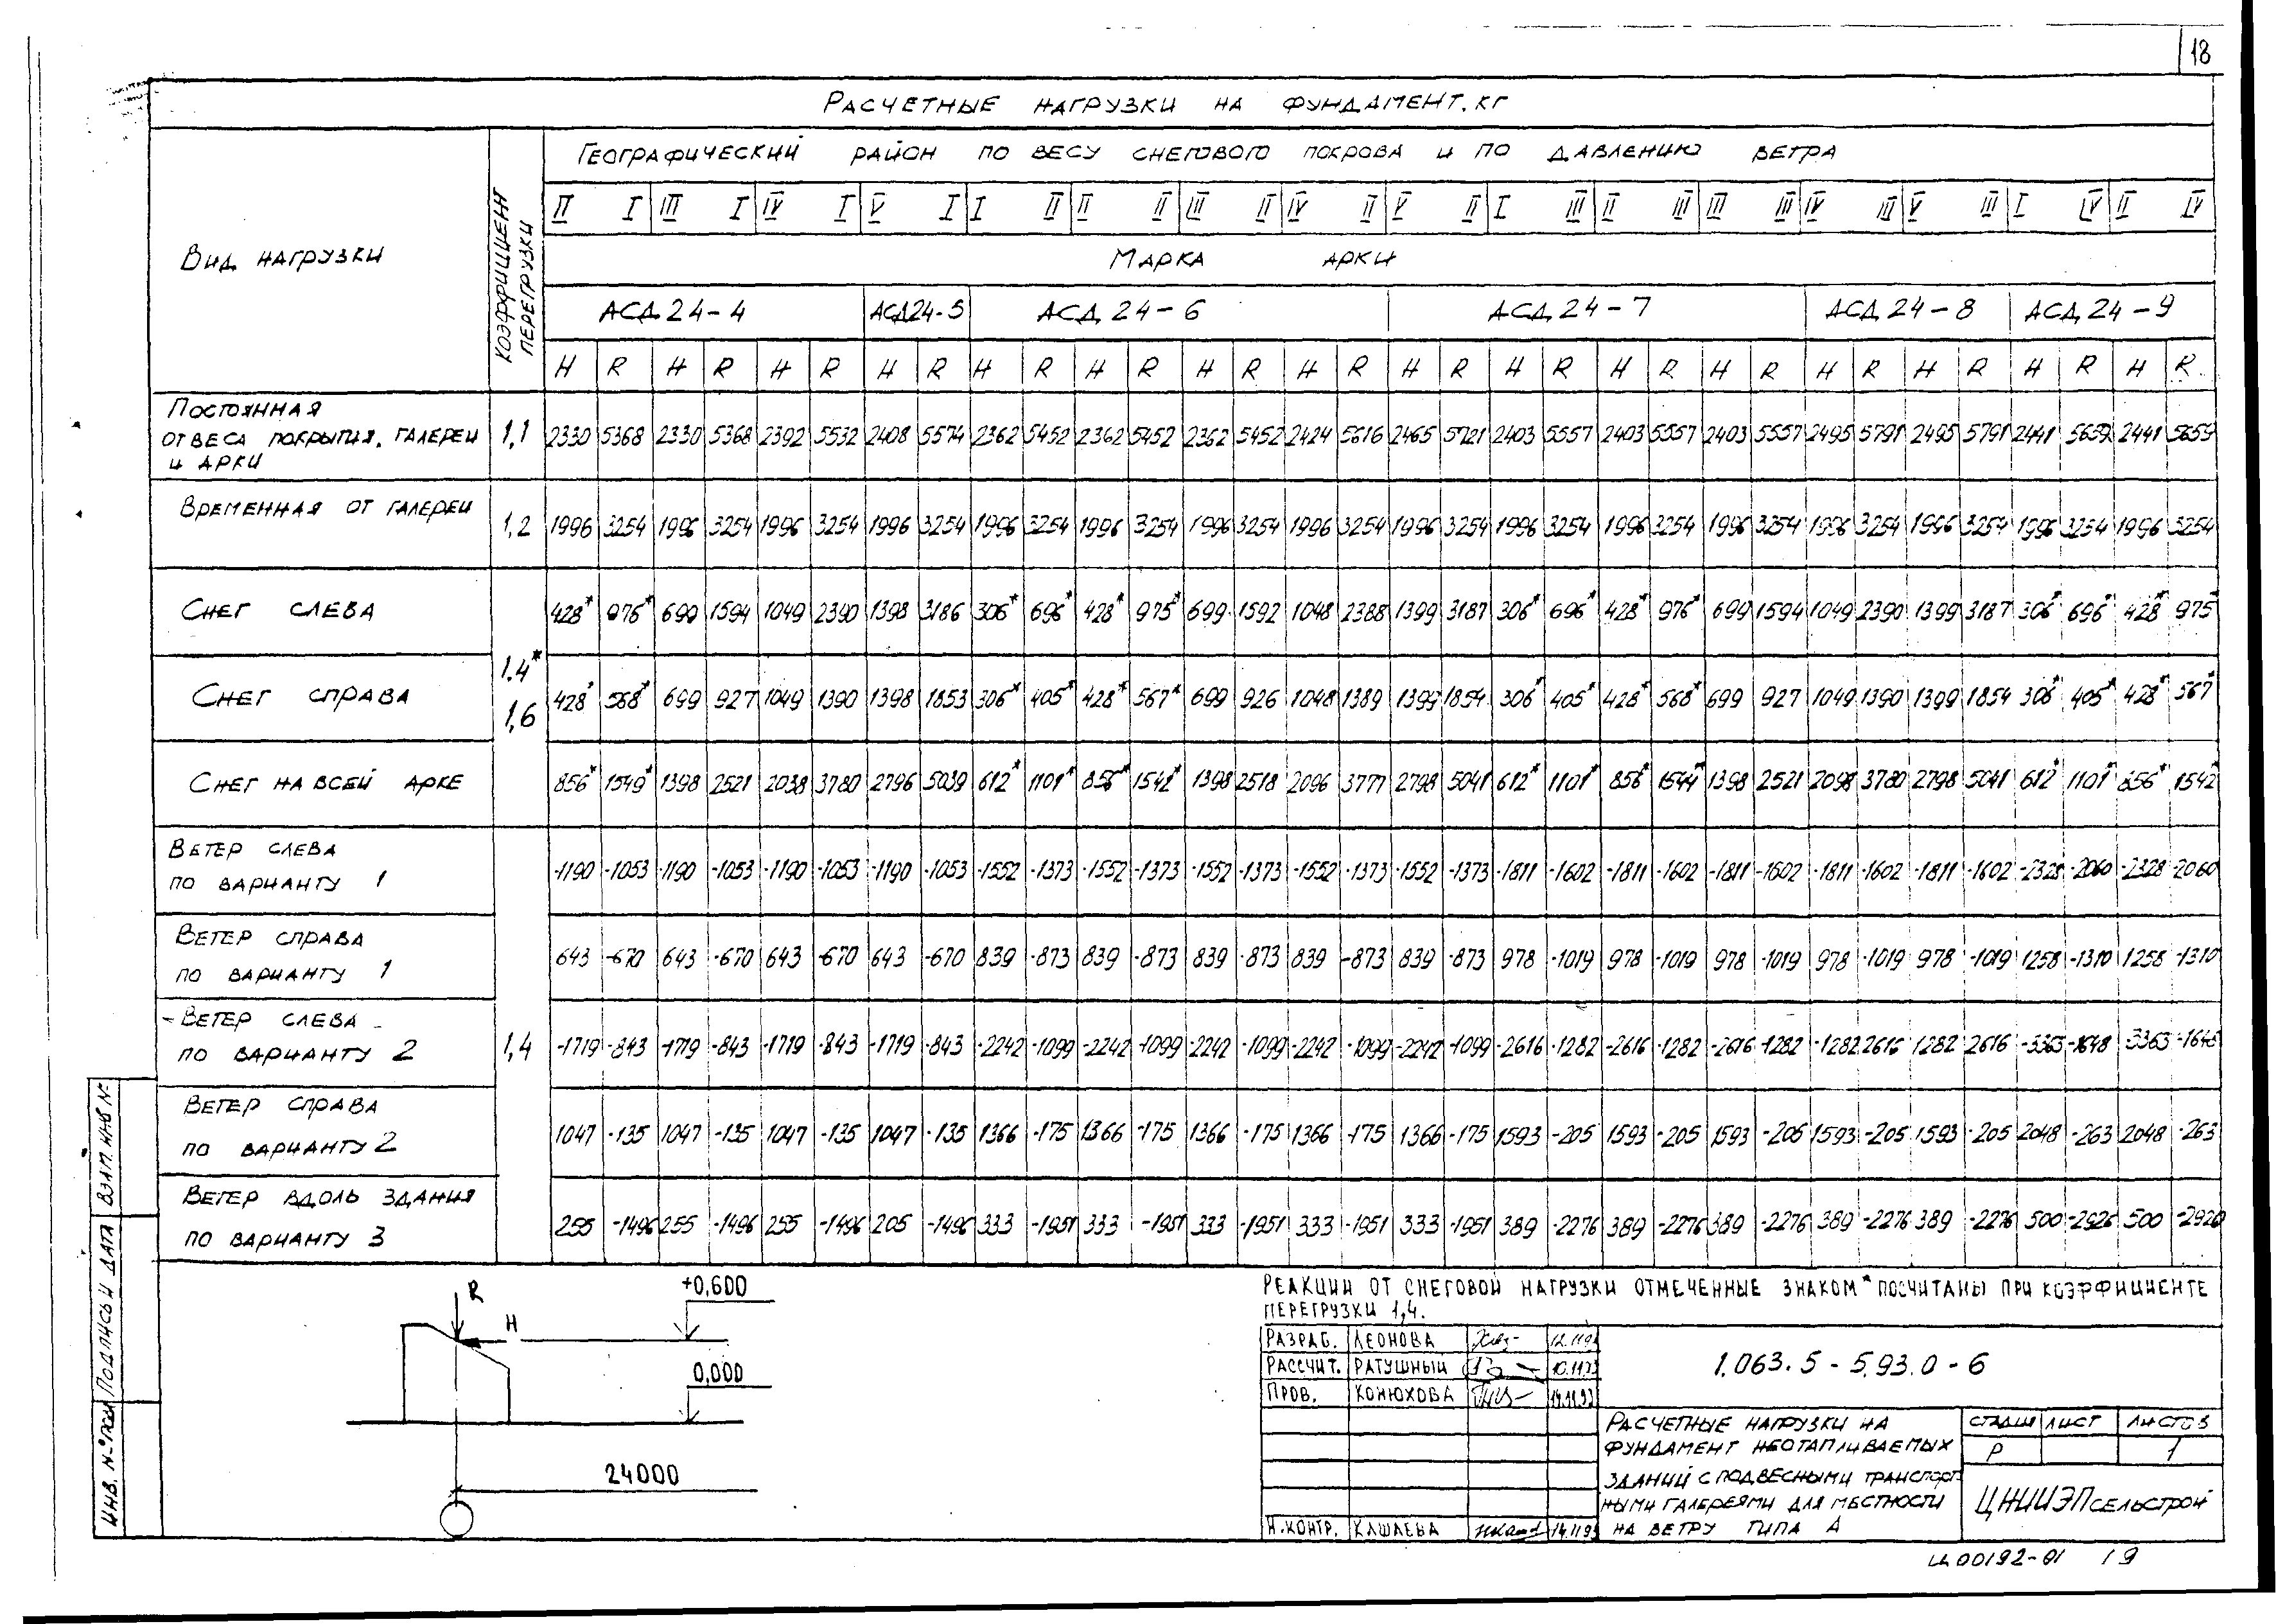 18
РАСЧЕТНЫЕ НАГРУЗКИ НА ФУНДАМЕНТ. КГ
ВИД НАГРУЗКИ
КОЭФФИЦИЕНТ ПЕРЕГРУЗКИ
ГЕОГРАФИЧЕСКИЙ РАЙОН ПО ВЕСУ СНЕГОВОГО ПОКРОВА И ПО ДАВЛЕНИЮ ВЕТРА
II I III I IV I V I I II II II III II IV II V II I III II III III III IV III V III I IV II IV
МАРКА АРКИ
АСД 24-4 АСД 24-5 АСД 24-6 АСД 24-7 АСД 24-8 АСД 24-9
H R H R H R H R H R H R H R H R H R H R H R H R H R H R H R H R
ПОСТОЯННАЯ
ОТ ВЕСА ПОКРЫТИЯ, ГАЛЕРЕИ
И АРКИ
1,1 2330 5368 2330 5368 2392 5532 2408 5574 2362 5452 2362 5452 2362 5452 2424 5616 2465 5721 2403 5557 2403 5557 2403 5557 2495 5791 2495 5791 2441 5659 2441 5659
ВРЕМЕННАЯ ОТ ГАЛЕРЕИ
1,2 1996 3254 1996 3254 1996 3254 1996 3254 1996 3254 1996 3254 1996 3254 1996 3254 1996 3254 1996 3254 1996 3254 1996 3254 1996 3254 1996 3254 1996 3254 1996 3254
СНЕГ СЛЕВА 428* 976* 699 1594 1049 2390 1398 3186 306* 696* 428* 975* 699 1592 1048 2388 1399 3187 306* 696* 428* 976* 699 1594 1049 2390 1399 3187 306* 696* 428* 975*
1.4*
1,6
СНЕГ СПРАВА 428* 568* 699 927 1049 1390 1398 1853 306* 405* 428* 567* 699 926 1048 1389 1399 1854 306* 405* 428* 568* 699 927 1049 1390 1399 1854 306* 405* 428* 567*
СНЕГ НА ВСЕЙ АРКЕ 856* 1549* 1398 2521 2038 3780 2796 5039 612* 1101* 856* 1542* 1398 2518 2096 3777 2798 5041 612* 1101* 856* 1544* 1398 2521 2098 3780 2798 5041 612* 1101* 856* 1542*
ВЕТЕР СЛЕВА
ПО ВАРИАНТУ 1
-1190 -1053 -1190 -1053 -1190 -1053 -1190 -1053 -1552 -1373 -1552 -1373 -1552 -1373 -1552 -1373 -1552 -1373 -1811 -1602 -1811 -1602 -1811 -1602 -1811 -1602 -1811 -1602 -2328 -2060 -2328 -2060
ВЕТЕР СПРАВА
ПО ВАРИАНТУ 1
643 -670 643 -670 643 -670 643 -670 839 -873 839 -873 839 -873 839 -873 839 -873 978 -1019 978 -1019 978 -1019 978 -1019 978 -1019 1258 -1310 1258 -1310
ВЕТЕР СЛЕВА
ПО ВАРИАНТУ 2
1,4 -1719 -843 -1719 -843 -1719 -843 -1719 -843 -2242 -1099 -2242 -1099 -2242 -1099 -2242 -1099 -2242 -1099 -2616 -1282 -2616 -1282 -2616 -1282 -1282 2616 1282 2616 -3363 -1648 -3363 -1648
ВЕТЕР СПРАВА
ПО ВАРИАНТУ 2
1047 -135 1047 -135 1047 -135 1047 -135 1366 -175 1366 -175 1366 -175 1366 -175 1366 -175 1593 -205 1593 -205 1593 -205 1593 -205 1593 -205 2048 -263 2048 -263
ВЕТЕР ВДОЛЬ ЗДАНИЯ
ПО ВАРИАНТУ 3
255 -1496 255 -1496 255 -1496 205 -1496 333 -1951 333 -1951 333 -1951 333 -1951 333 -1951 389 -2276 389 -2276 389 -2276 389 -2276 389 -2276 500 -2926 500 -2920
R
H
+0,600
0,000
24000
РЕАКЦИИ ОТ СНЕГОВОЙ НАГРУЗКИ ОТМЕЧЕННЫЕ ЗНАКОМ * ПОСЧИТАНЫ ПРИ КОЭФФИЦИЕНТЕ
ПЕРЕГРУЗКИ 1,4.
РАЗРАБ. ЛЕОНОВА 12.11.93
РАССЧИТ. РАТУШНЫЙ 10.11.93
ПРОВ. КОНЮХОВА 14.11.93
Н.КОНТР. КАШАЕВА 14.11.93
1.063.5-5.93.0-6
РАСЧЕТНЫЕ НАГРУЗКИ НА
ФУНДАМЕНТ НЕОТАПЛИВАЕМЫХ
ЗДАНИЙ С ПОДВЕСНЫМИ ТРАНСПОРТ
НЫМИ ГАЛЕРЕЯМИ ДЛЯ МЕСТНОСТИ
НА ВЕТРУ ТИПА А
СТАДИЯ ЛИСТ ЛИСТОВ
Р 1
ЦНИИЭПсельстрой
Ц00192-01 19
ИНВ. № ПОДЛ ПОДПИСЬ И ДАТА ВЗАМ. ИНВ №